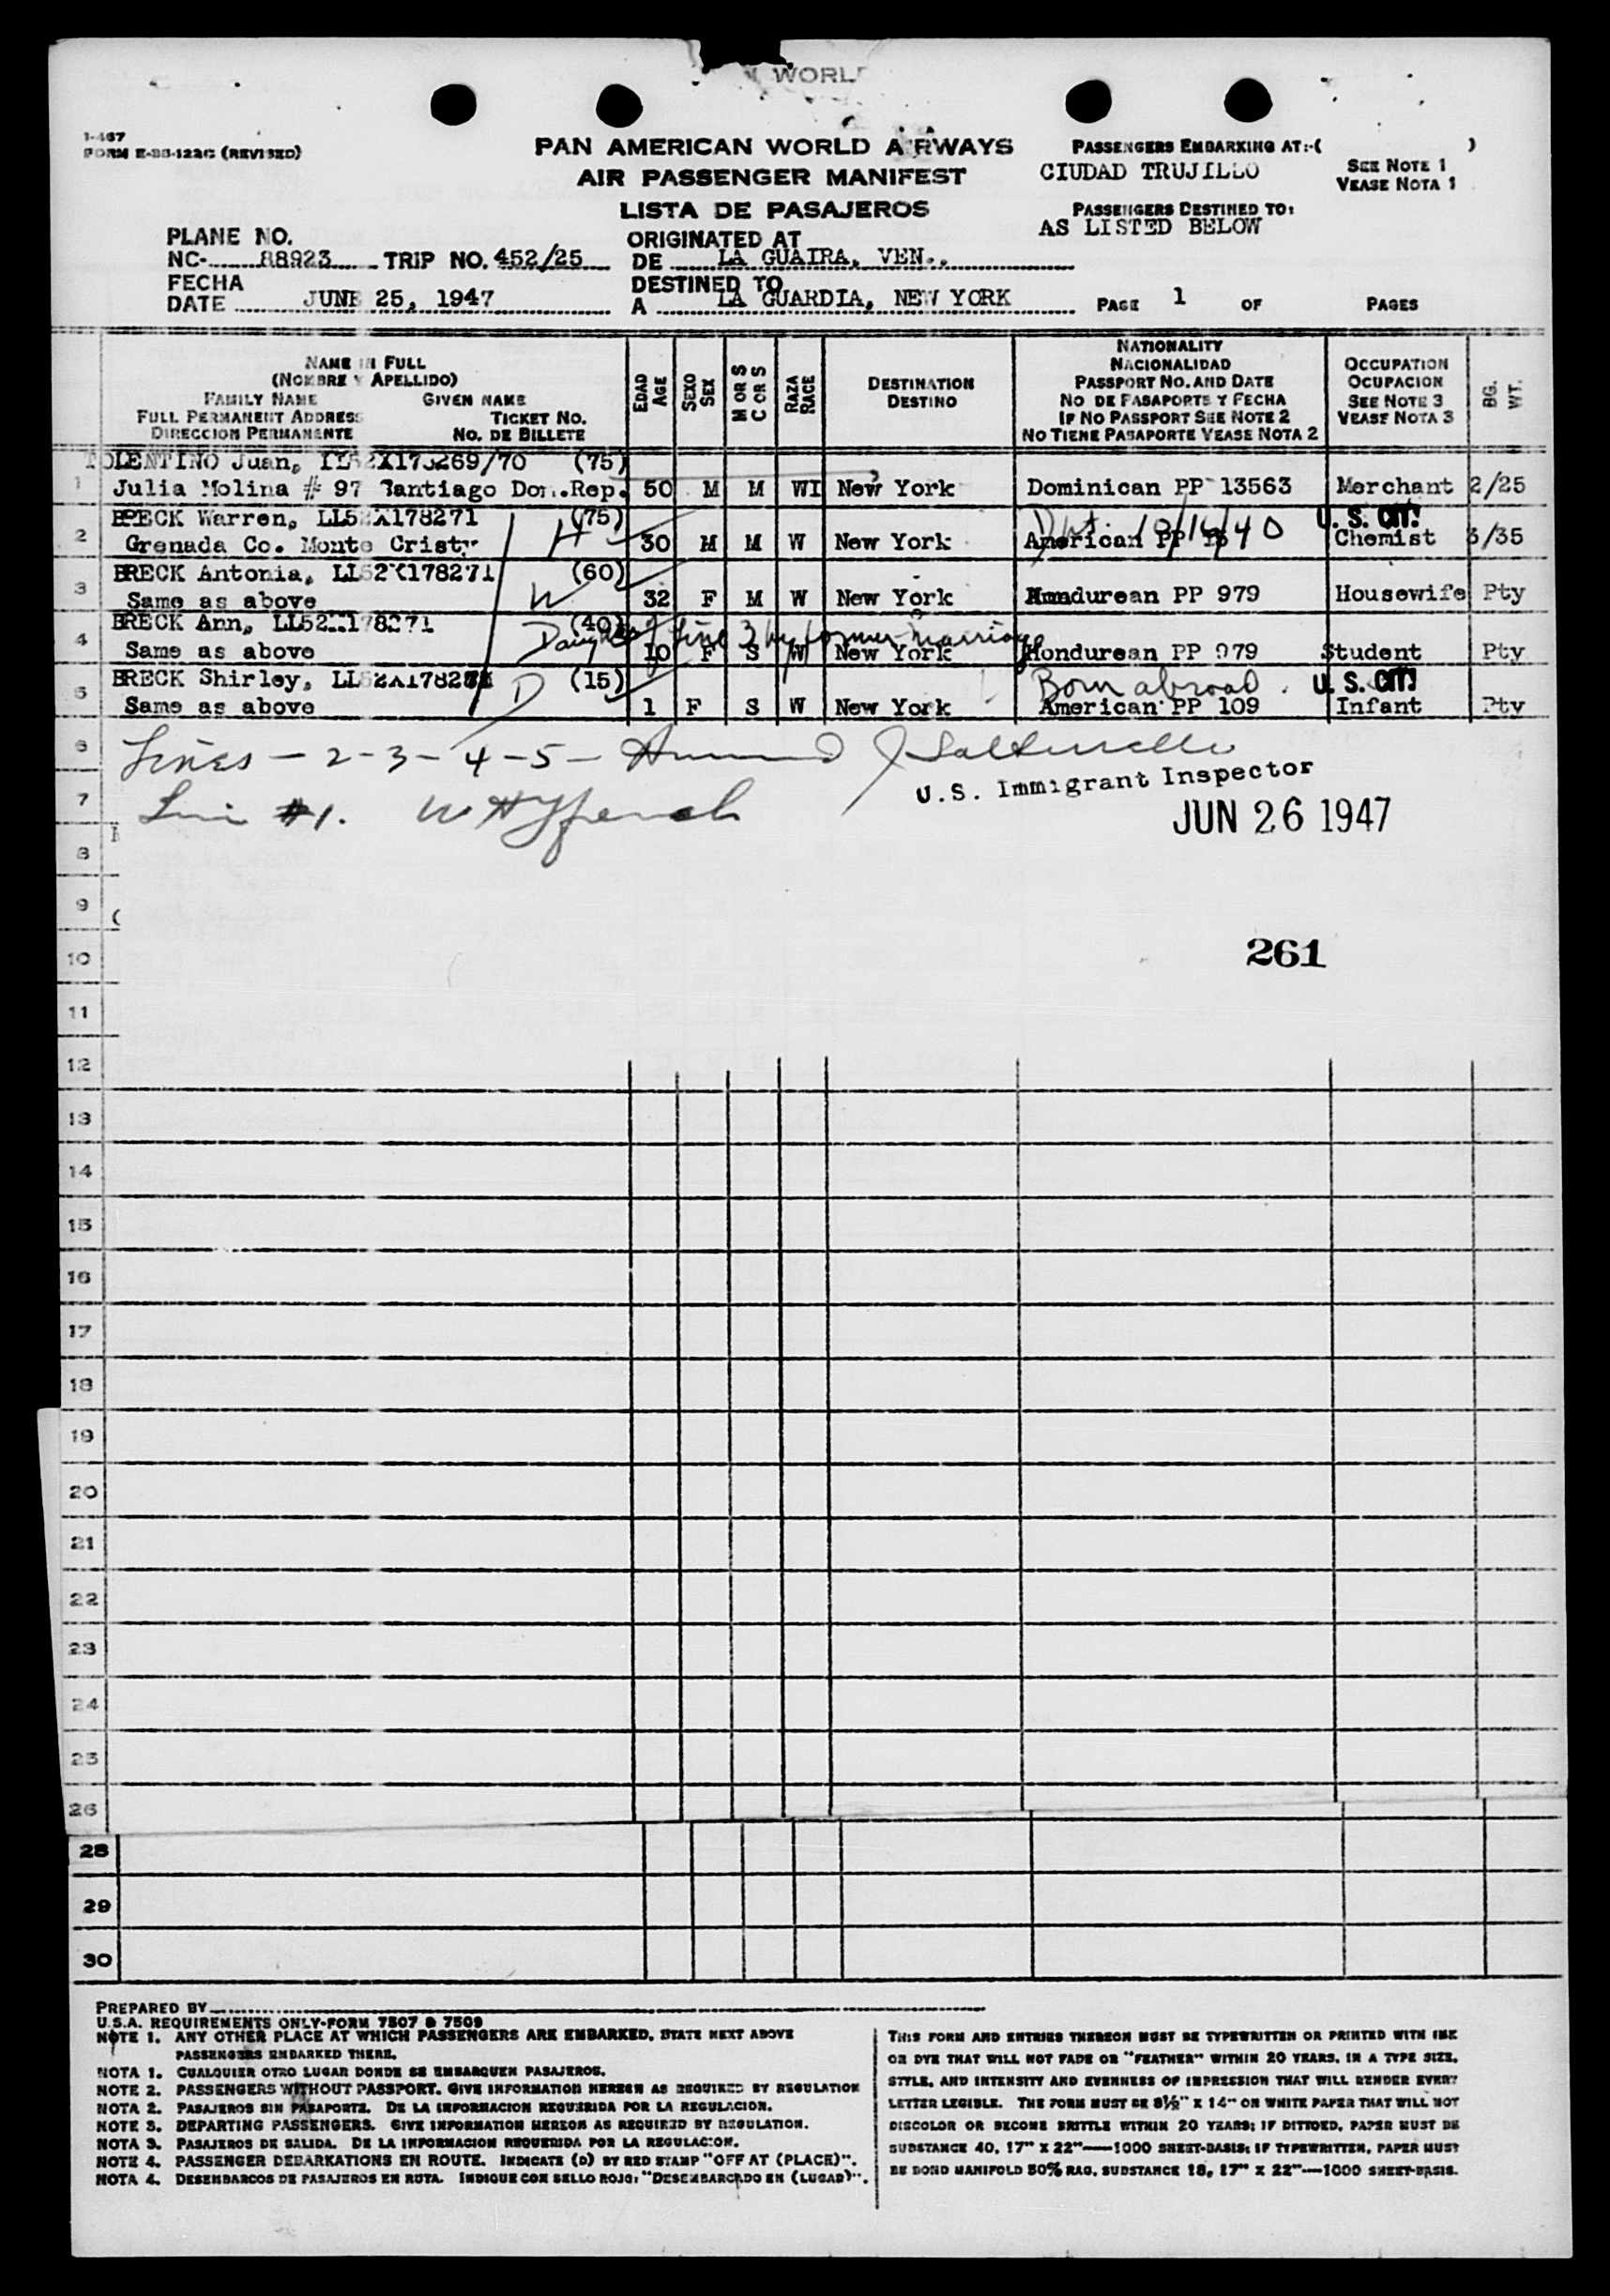 WORL
I-467
FORM E-BS-122C (REVISED)
PAN AMERICAN WORLD AIRWAYS
AIR PASSENGER MANIFEST
LISTA DE PASAJEROS
PASSENGERS EMBARKING AT:-( )
CIUDAD TRUJILLO
SEE NOTE 1
VEASE NOTA 1
PASSENGERS DESTINED TO:
AS LISTED BELOW
PLANE NO.
NC- 88923 TRIP NO. 452/25
ORIGINATED AT
DE LA GUAIRA, VEN.,
FECHA
DATE JUNE 25, 1947
DESTINED TO
A LA GUARDIA, NEW YORK
PAGE 1 OF PAGES
NAME IN FULL
(NOMBRE Y APELLIDO)
FAMILY NAME GIVEN NAME
FULL PERMANENT ADDRESS TICKET NO.
DIRECCION PERMANENTE NO. DE BILLETE
EDAD AGE
SEXO SEX
M OR S C OR S
RAZA RACE
DESTINATION
DESTINO
NATIONALITY
NACIONALIDAD
PASSPORT NO. AND DATE
NO DE PASAPORTE Y FECHA
IF NO PASSPORT SEE NOTE 2
NO TIENE PASAPORTE VEASE NOTA 2
OCCUPATION
OCUPACION
SEE NOTE 3
VEASE NOTA 3
BG. WT.
TOLENTINO Juan, (75)
1 Julia Molina # 97 Santiago Dom.Rep. 50 M M WI New York Dominican PP 13563 Merchant 2/25
BRECK Warren, LL52X178271 (75) H 10/16/40 U. S. CIT!
2 Grenada Co. Monte Cristy 30 M M W New York American PP Chemist 3/35
BRECK Antonia, LL52X178271 (60) W
3 Same as above 32 F M W New York Hondurean PP 979 Housewife Pty
BRECK Ann, LL52X178271 (40) Daughter of line 3 by former marriage
4 Same as above 10 F S W New York Hondurean PP 979 Student Pty
BRECK Shirley, LL52X178271 (15) D Born abroad U. S. CIT!
5 Same as above 1 F S W New York American PP 109 Infant Pty
6 Lines - 2-3-4-5-
U.S. Immigrant Inspector
7 Line #1.
JUN 26 1947
8
9
10
261
11
12
13
14
15
16
17
18
19
20
21
22
23
24
25
26
28
29
30
PREPARED BY
U.S.A. REQUIREMENTS ONLY-FORM 7507 & 7509
NOTE 1. ANY OTHER PLACE AT WHICH PASSENGERS ARE EMBARKED, STATE NEXT ABOVE
PASSENGERS EMBARKED THERE.
NOTA 1. CUALQUIER OTRO LUGAR DONDE SE EMBARQUEN PASAJEROS.
NOTE 2. PASSENGERS WITHOUT PASSPORT. GIVE INFORMATION HEREON AS REQUIRED BY REGULATION
NOTA 2. PASAJEROS SIN PASAPORTE. DE LA INFORMACION REQUERIDA POR LA REGULACION.
NOTE 3. DEPARTING PASSENGERS. GIVE INFORMATION HEREON AS REQUIRED BY REGULATION.
NOTA 3. PASAJEROS DE SALIDA. DE LA INFORMACION REQUERIDA POR LA REGULACION.
NOTE 4. PASSENGER DEBARKATIONS EN ROUTE. INDICATE (D) BY RED STAMP "OFF AT (PLACE)".
NOTA 4. DESEMBARCOS DE PASAJEROS EN RUTA. INDIQUE CON SELLO ROJO: "DESEMBARCADO EN (LUGAR)".
THIS FORM AND ENTRIES THEREON MUST BE TYPEWRITTEN OR PRINTED WITH INK
OR DYE THAT WILL NOT FADE OR "FEATHER" WITHIN 20 YEARS, IN A TYPE SIZE,
STYLE, AND INTENSITY AND EVENNESS OF IMPRESSION THAT WILL RENDER EVERY
LETTER LEGIBLE. THE FORM MUST BE 8½" X 14" ON WHITE PAPER THAT WILL NOT
DISCOLOR OR BECOME BRITTLE WITHIN 20 YEARS; IF DITTOED, PAPER MUST BE
SUBSTANCE 40, 17" X 22"—1000 SHEET-BASIS; IF TYPEWRITTEN, PAPER MUST
BE BOND MANIFOLD 50% RAG, SUBSTANCE 18, 17" X 22"—1000 SHEET-BASIS.